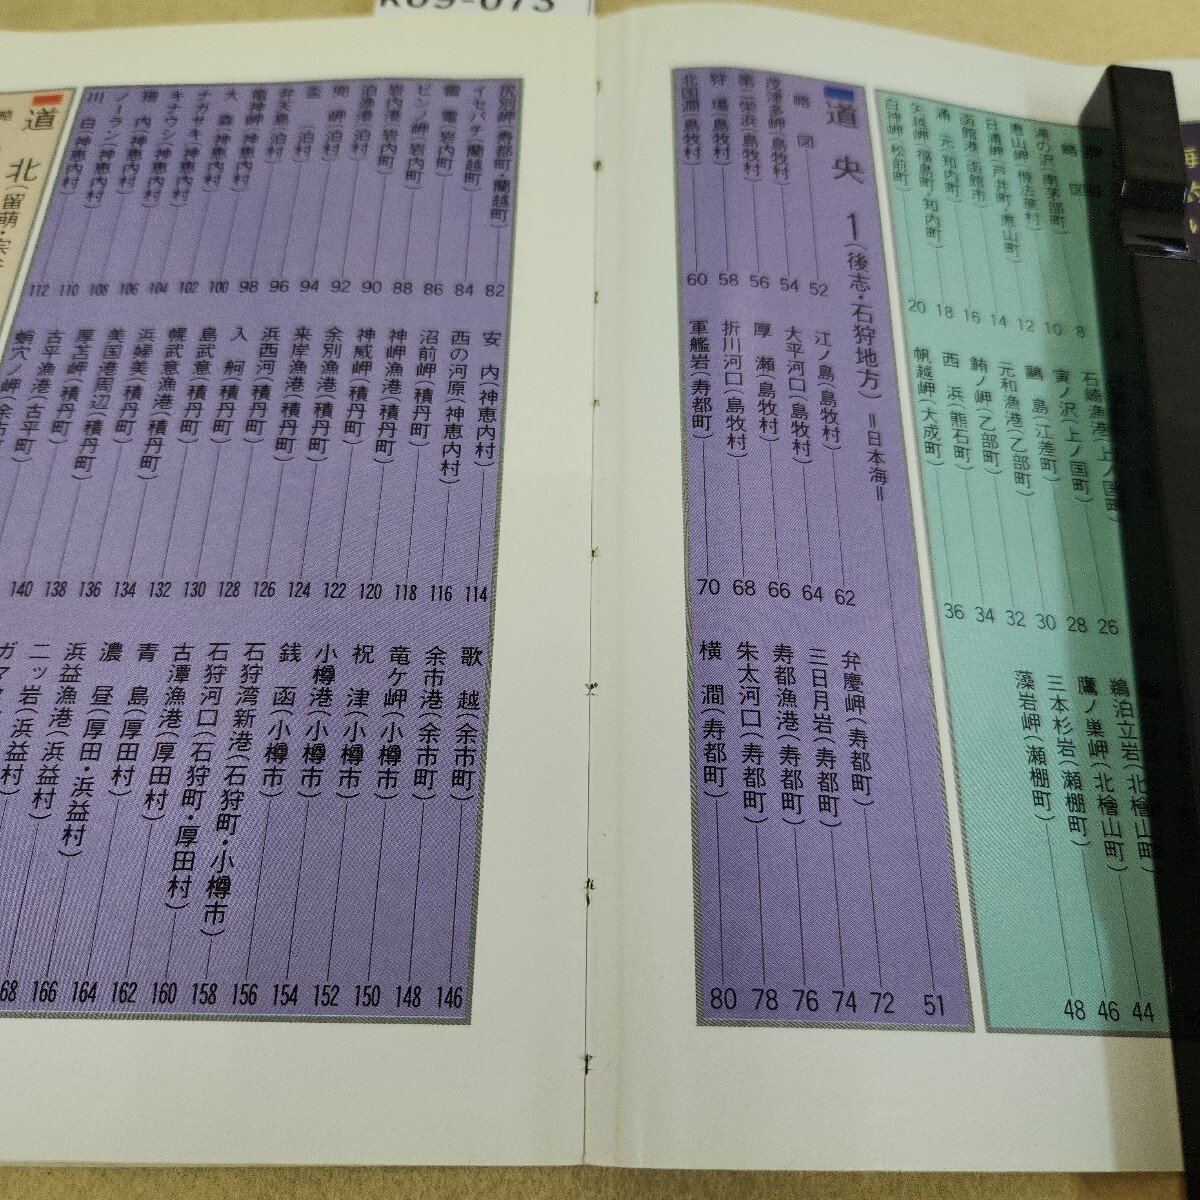 K09-073
略図 8
滝の沢(南茅部町) 10
恵山岬(椴法華村) 12
日浦岬(戸井町・恵山町) 14
函館港(函館市) 16
浦元(知内町) 18
矢越岬(福島町・知内町)
白神岬(松前町) 20
石崎漁港(上ノ国町) 26
寅ノ沢(上ノ国町) 28
鷗島(江差町) 30
元和漁港(乙部町) 32
鮪ノ岬(乙部町) 34
西浜(熊石町) 36
帆越岬(大成町)
鵜泊立岩(北檜山町) 44
鷹ノ巣岬(北檜山町) 46
三本杉岩(瀬棚町) 48
藻岩岬(瀬棚町)
道央 1(後志・石狩地方)=日本海= 51
略図 52
茂津多岬(島牧村) 54
第二栄浜(島牧村) 56
狩場(島牧村) 58
北国澗(島牧村) 60
江ノ島(島牧村) 62
大平河口(島牧村) 64
厚瀬(島牧村) 66
折川河口(島牧村) 68
軍艦岩(寿都町) 70
弁慶岬(寿都町) 72
三日月岩(寿都町) 74
寿都漁港(寿都町) 76
朱太河口(寿都町) 78
横澗(寿都町) 80
尻別岬(寿都町・蘭越町) 82
イセバチ(蘭越町) 84
雷電(岩内町) 86
ビンノ岬(岩内町) 88
岩内港(岩内町) 90
泊漁港(泊村) 92
兜岬(泊村) 94
盃(泊村) 96
弁天島(泊村) 98
竜神岬(神恵内村) 100
大森(神恵内村) 102
ナガサキ(神恵内村) 104
キナウシ(神恵内村) 106
珊内(神恵内村) 108
ノーラン(神恵内村) 110
川白(神恵内村) 112
安内(神恵内村) 114
西の河原(神恵内村) 116
沼前岬(積丹町) 118
神岬漁港(積丹町) 120
神威岬(積丹町) 122
余別漁港(積丹町) 124
来岸漁港(積丹町) 126
浜西河(積丹町) 128
入舸(積丹町) 130
島武意(積丹町) 132
幌武意漁港(積丹町) 134
浜婦美(積丹町) 136
美国港周辺(積丹町) 138
厚苫岬(積丹町) 140
古平漁港(古平町)
蛸穴ノ岬(余市町
歌越(余市町) 146
余市港(余市町) 148
竜ケ岬(小樽市) 150
祝津(小樽市) 152
小樽港(小樽市) 154
銭函(小樽市) 156
石狩湾新港(石狩町・小樽市) 158
石狩河口(石狩町・厚田村) 160
古潭漁港(厚田村) 162
青島(厚田村) 164
濃昼(厚田・浜益村) 166
浜益漁港(浜益村) 68
二ッ岩(浜益村)
道北(留萌・宗
略